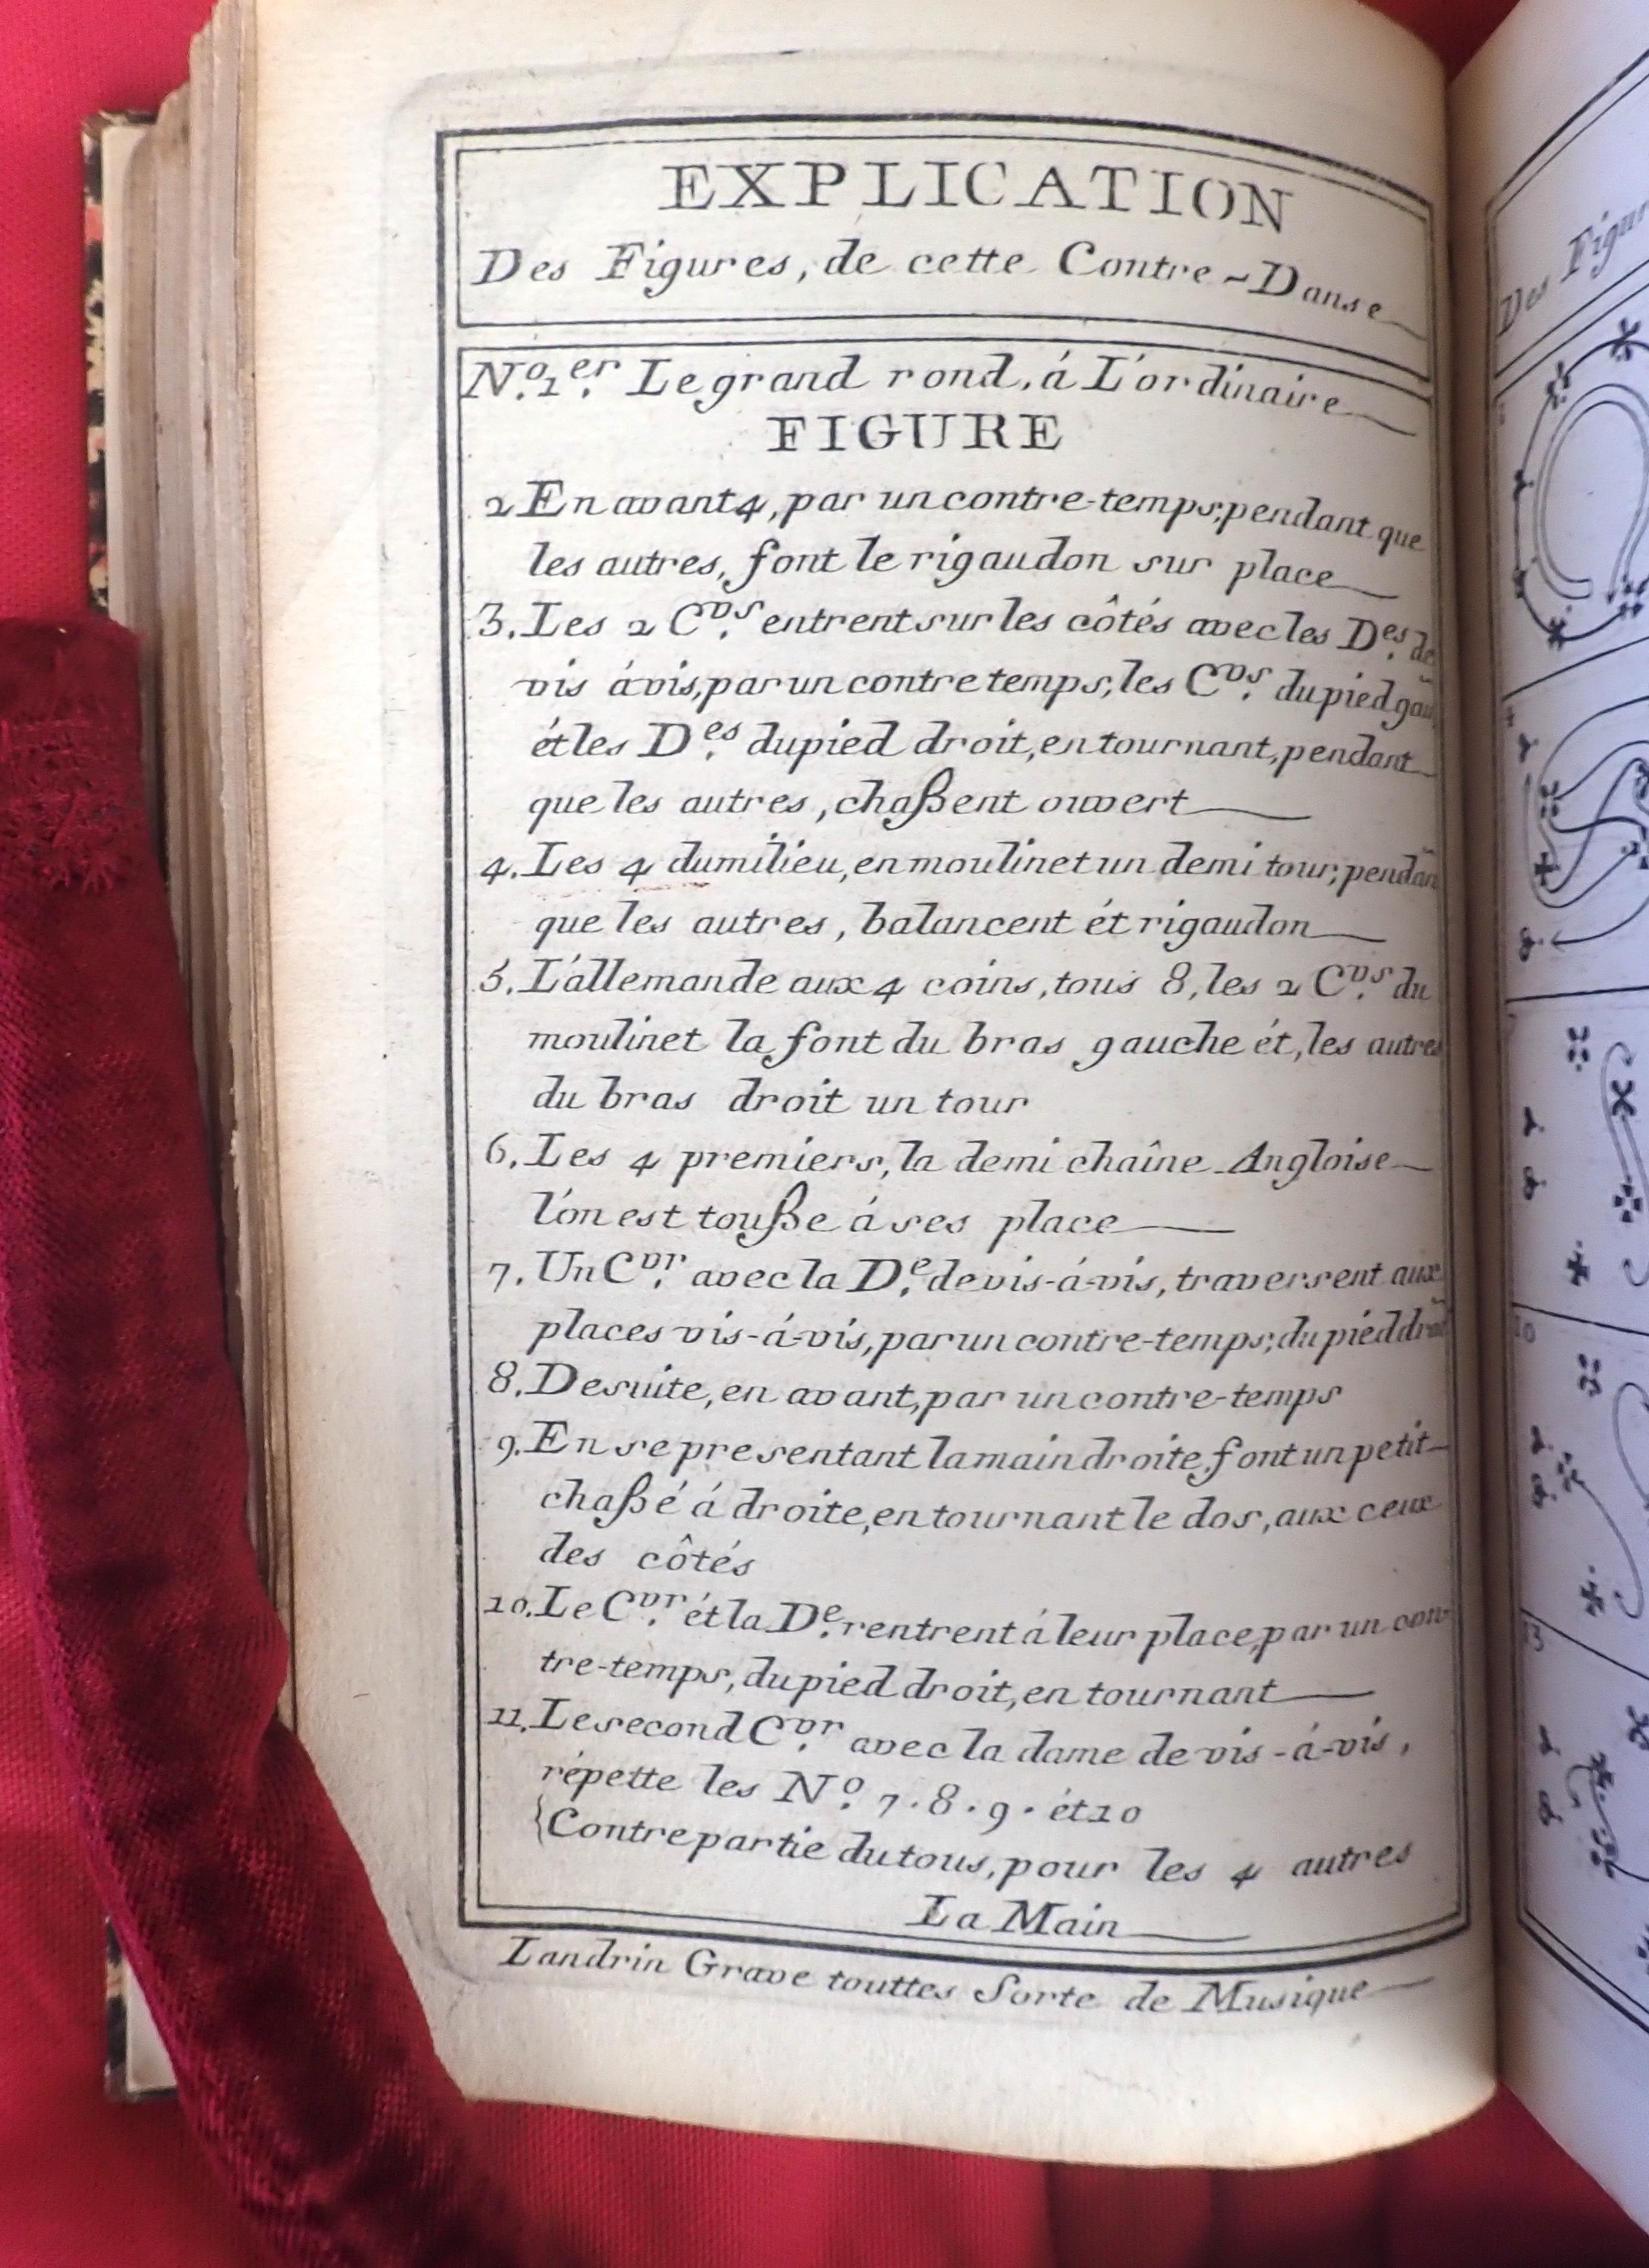 EXPLICATION
Des Figures, de cette Contre-Danse
N.º 1.er Le grand rond, á L'ordinaire
FIGURE
2 En avant 4, par un contre-temps, pendant que
les autres, font le rigaudon sur place
3. Les 2 C.vrs entrent sur les côtés avec les D.es de
vis ávis, par un contre temps, les C.vrs du pied gau
ét les D.es du pied droit, en tournant, pendant
que les autres, chaßent ouvert
4. Les 4 du milieu, en moulinet un demi tour, pendan
que les autres, balancent ét rigaudon
5. L'allemande aux 4 coins, tous 8, les 2 C.vrs du
moulinet la font du bras gauche ét, les autres
du bras droit un tour
6. Les 4 premiers, la demi chaîne Angloise
l'on est toußé á ses place
7. Un C.vr avec la D.e de vis-á-vis, traversent aux
places vis-á-vis, par un contre-temps, du piéd droit
8. De suite, en avant, par un contre-temps
9. En se presentant la main droite, font un petit
chaßé á droite, en tournant le dos, aux ceux
des côtés
10. Le C.vr ét la D.e rentrent á leur place, par un con-
tre-temps, du pied droit, en tournant
11. Le second C.vr avec la dame de vis-á-vis,
répette les N.º 7. 8. 9. ét 10
{Contre partie du tous, pour les 4 autres
La Main
Landrin Grave touttes Sorte de Musique
Des Figur